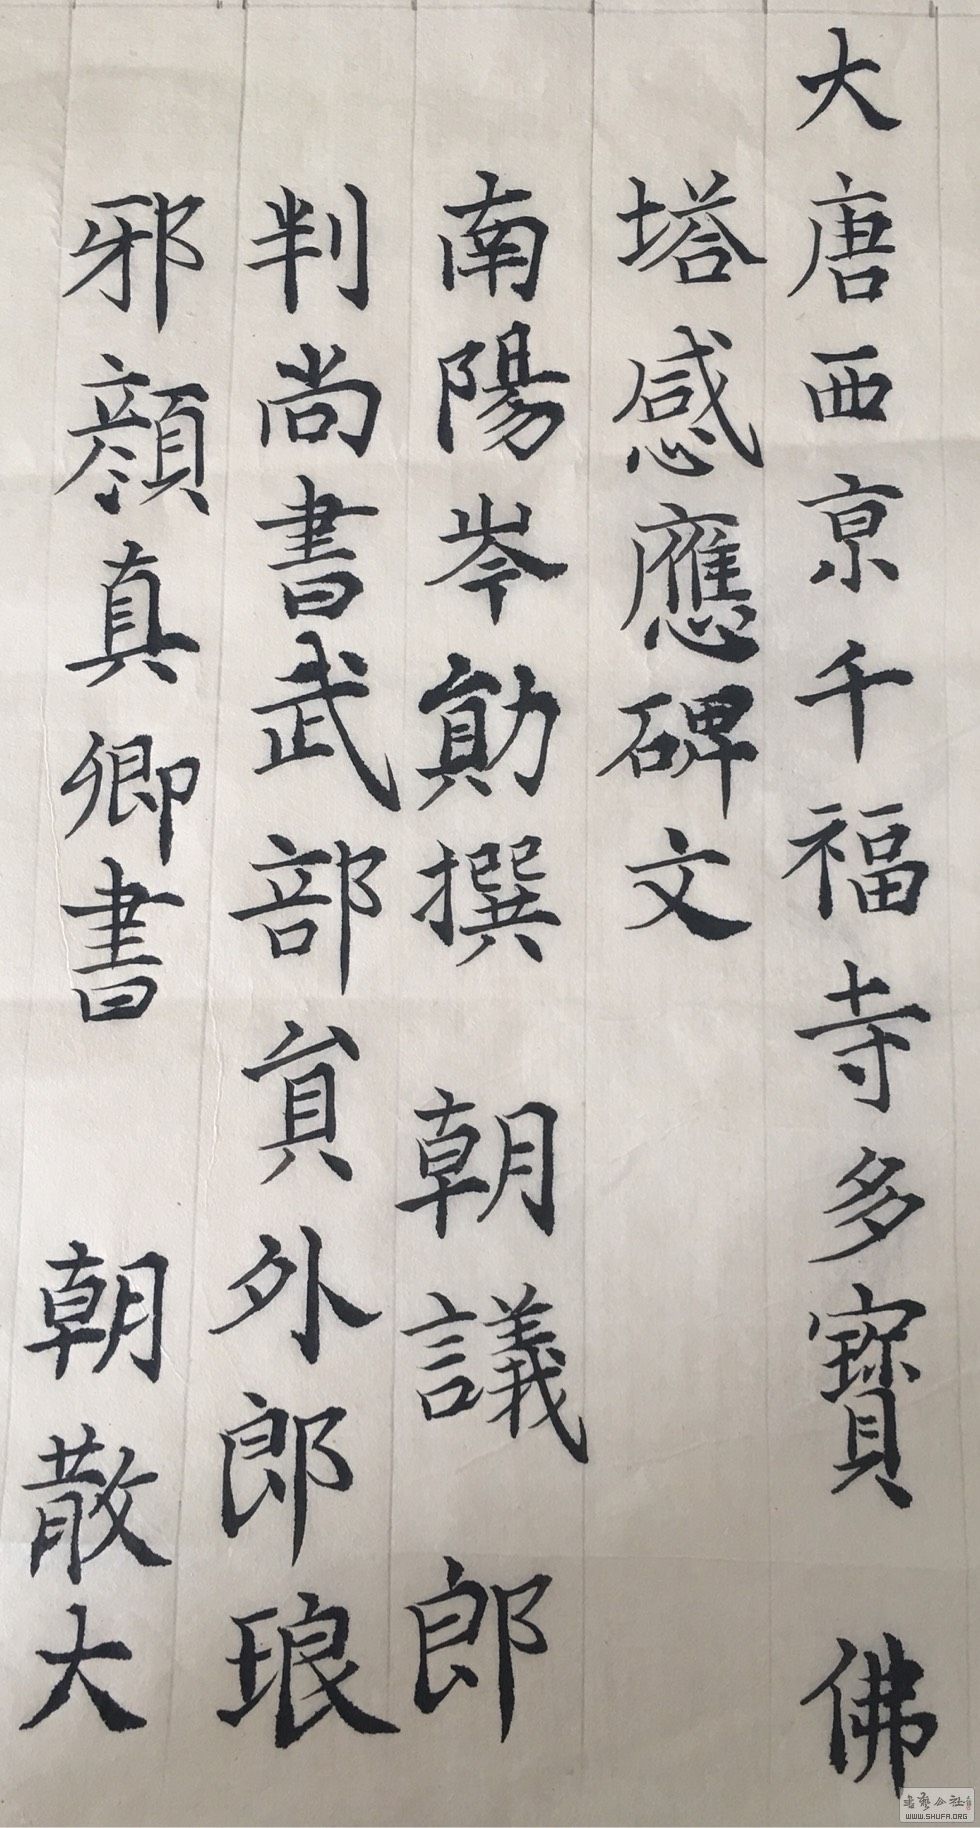 大唐西京千福寺多寶佛
塔感應碑文
南陽岑勛撰 朝議郎
判尚書武部員外郎琅
邪顏真卿書 朝散大
WWW.SHUFA.ORG